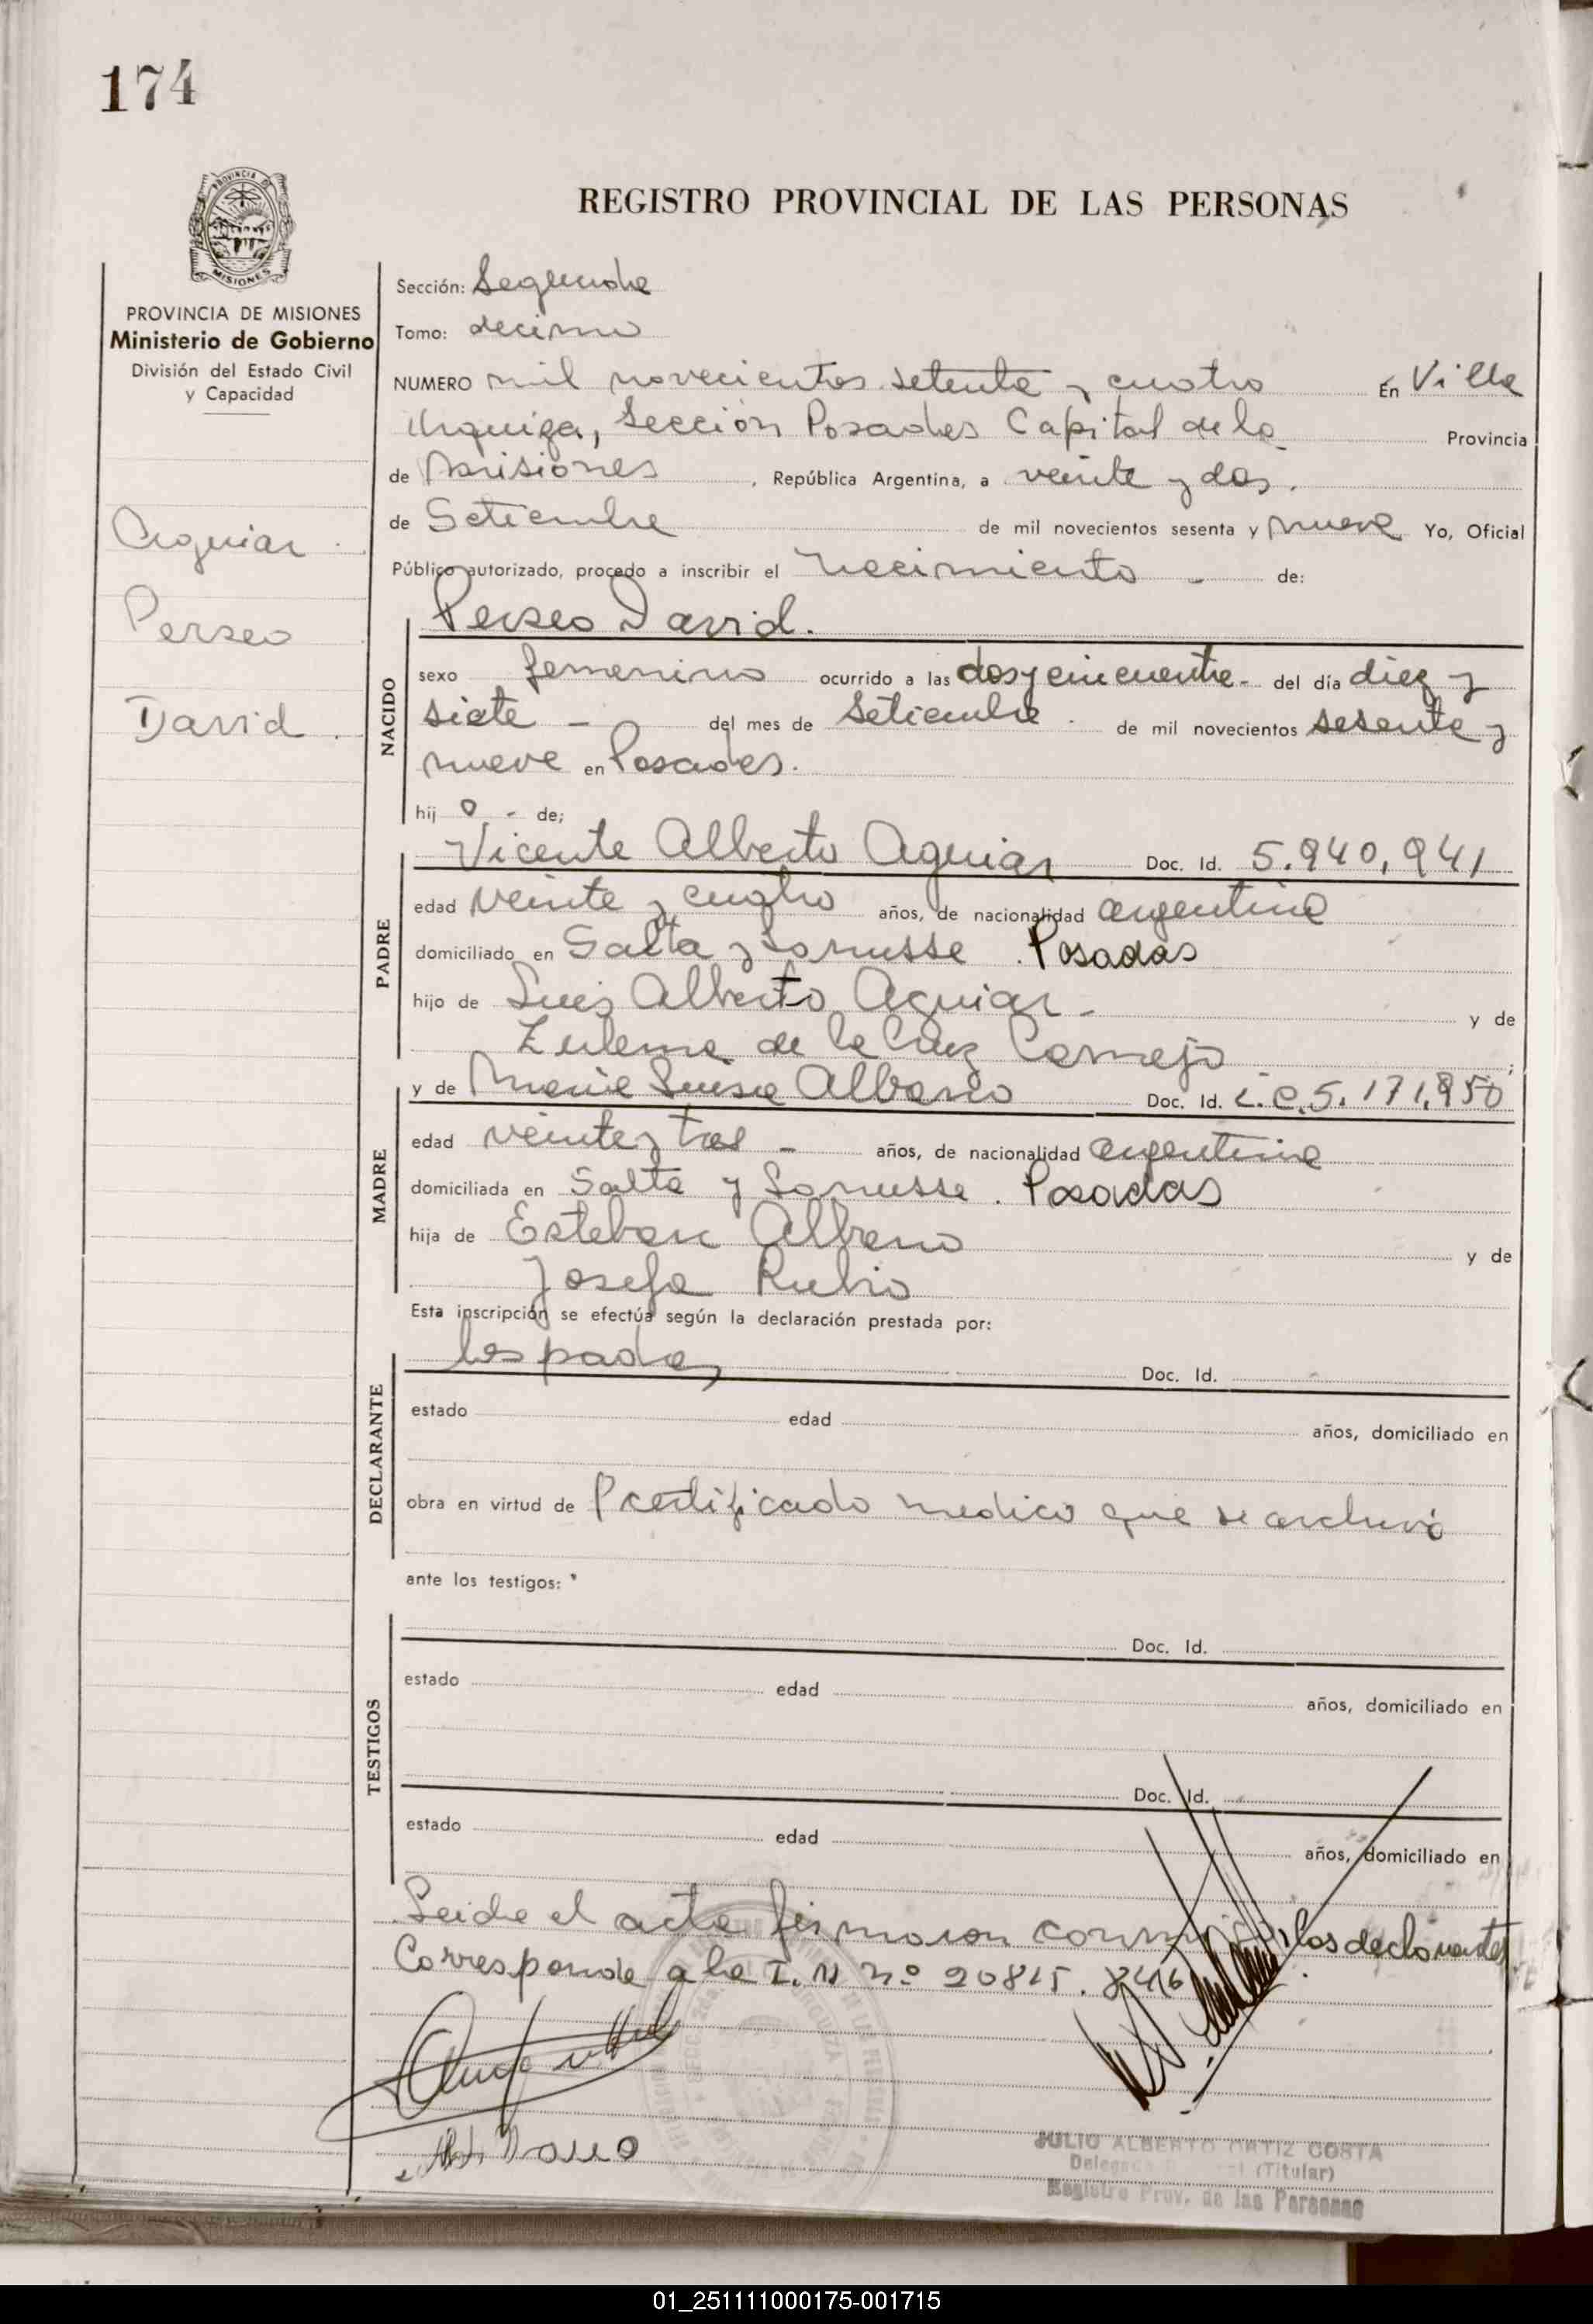 174
PROVINCIA DE
MISIONES
PROVINCIA DE MISIONES
Ministerio de Gobierno
División del Estado Civil
y Capacidad
Aguiar
Perseo
David.
REGISTRO PROVINCIAL DE LAS PERSONAS
Sección: Segunda
Tomo: decimo
NUMERO mil novecientos setenta y cuatro En Villa
Urquiza, Sección Posadas Capital de la Provincia
de Misiones, República Argentina, a veinte y dos.
de Setiembre de mil novecientos sesenta y nueve Yo, Oficial
Público autorizado, procedo a inscribir el nacimiento - de:
NACIDO
Perseo David.
sexo femenino ocurrido a las dos y cincuenta - del día diez y
siete - del mes de Setiembre. de mil novecientos sesenta y
nueve en Posadas.
hij o - de;
PADRE
Vicente Alberto Aguiar Doc. Id. 5.940,941
edad veinte y cuatro años, de nacionalidad argentina
domiciliado en Salta y Lanusse. Posadas
hijo de Luis Alberto Aguiar - y de
Zulema de la Cruz Cornejo;
MADRE
y de Maria Luisa Albano Doc. Id. L.C. 5.171.850
edad veinte y tres - años, de nacionalidad argentina
domiciliada en Salta y Lanusse. Posadas
hija de Esteban Albano y de
Josefa Rubio
Esta inscripción se efectúa según la declaración prestada por:
DECLARANTE
los padres Doc. Id.
estado edad años, domiciliado en
obra en virtud de certificado medico que se archivó
ante los testigos:
TESTIGOS
Doc. Id.
estado edad años, domiciliado en
Doc. Id.
estado edad años, domiciliado en
Leida el acta firmaron conmigo, los declarantes
Corresponde a la I. N nº 20815.8416
JULIO ALBERTO ORTIZ COSTA
(Titular)
Registro Prov. de las Personas
01_251111000175-001715